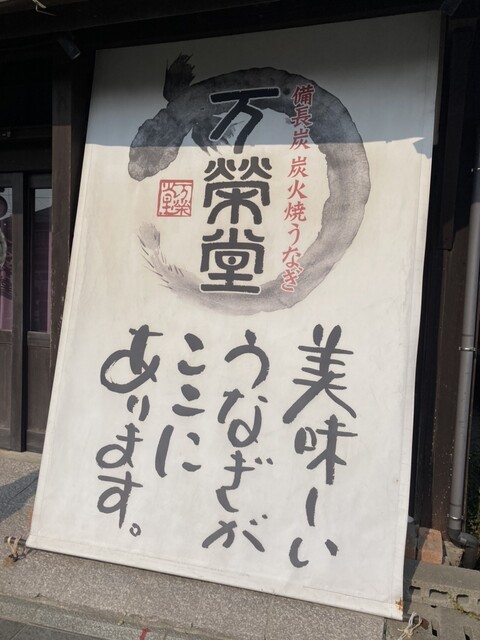 備長炭 炭火焼うなぎ
万榮堂
万榮堂
美味しい
うなぎが
ここに
あります。